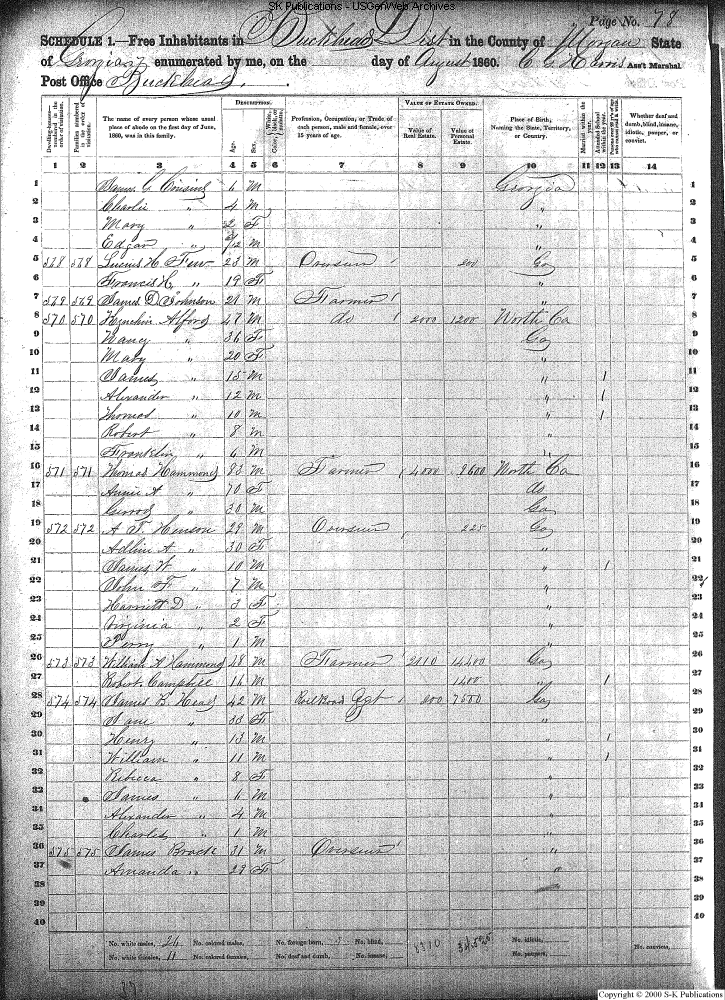 SK Publications - USGenWeb Archives
Page No. 78
SCHEDULE 1.—Free Inhabitants in Buckhead Dist in the County of Morgan State
of Georgia enumerated by me, on the day of August 1860. C G Harris Ass't Marshal
Post Office Buckhead.
Dwelling-houses numbered in the order of visitation.
Families numbered in the order of visitation.
The name of every person whose usual place of abode on the first day of June, 1860, was in this family.
DESCRIPTION.
Age.
Sex.
Color, White, black, or mulatto.
Profession, Occupation, or Trade of each person, male and female, over 15 years of age.
VALUE OF ESTATE OWNED.
Value of Real Estate.
Value of Personal Estate.
Place of Birth, Naming the State, Territory, or Country.
Married within the year.
Attended School within the year.
Whether deaf and dumb, blind, insane, idiotic, pauper, or convict.
1 2 3 4 5 6 7 8 9 10 11 12 13 14
1 James G Cousins 6 M Georgia 1
2 Charlie " 4 M " 2
3 Mary " 2 F " 3
4 Edgar " /12 M " 4
5 568 568 Lucius H. Few 23 M Overseer 200 Ga 5
6 Francis H. " 19 F " 6
7 569 569 James D Johnson 21 M Farmer " 7
8 570 570 Alford 47 M do 2000 1200 North Ca 8
9 Nancy " 36 F Ga 9
10 Mary " 20 F " 10
11 James " 15 M " 1 11
12 Alexander " 12 M " 1 12
13 Thomas " 10 M " 1 13
14 Robert " 8 M " 14
15 Franklin " 6 M " 15
16 571 571 Thomas Hammond 83 M Farmer 4000 9600 North Ca 16
17 Annie A " 70 F do 17
18 30 M Ga 18
19 572 572 A T. Henson 29 M Overseer 225 Ga 19
20 Adline A " 30 F " 20
21 James W " 10 M " 1 21
22 John F. " 7 M " 22
23 Harriett D " 3 F " 23
24 Virginia " 2 F " 24
25 Perry " 1 M " 25
26 573 573 William A Hammond 48 M Farmer 2110 14400 Ga 26
27 Robert Campbell 16 M 1400 " 1 27
28 574 574 James B. Head 42 M Rail Road Agt 200 7500 Ga 28
29 Jane " 33 F " 29
30 Henry " 13 M 1 30
31 William " 11 M " 1 31
32 Rebecca " 8 F " 32
33 James " 6 M " 33
34 Alexander " 4 M " 34
35 Charles " 1 M " 35
36 575 575 James Brack 31 M Overseer " 36
37 Amanda " 29 F " 37
38 38
39 39
40 40
No. white males, 26 No. colored males, No. foreign born, No. blind, 34,525 No. idiotic, No. convicts,
No. white females, 11 No. colored females, No. deaf and dumb, No. insane, No. paupers,
Copyright © 2000 S-K Publications